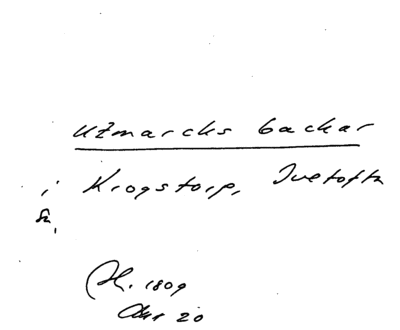 Utmarcks backar
i Krogstorp, Ivetofta
sn,
1809
20